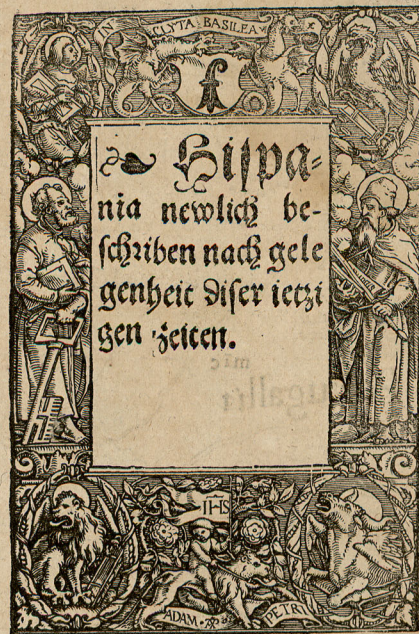 IN CLYTA BASILEA
Hispa=
nia newlich be-
schriben nach gele
genheit diser ietzi
gen zeiten.
IHS
ADAM PETRI